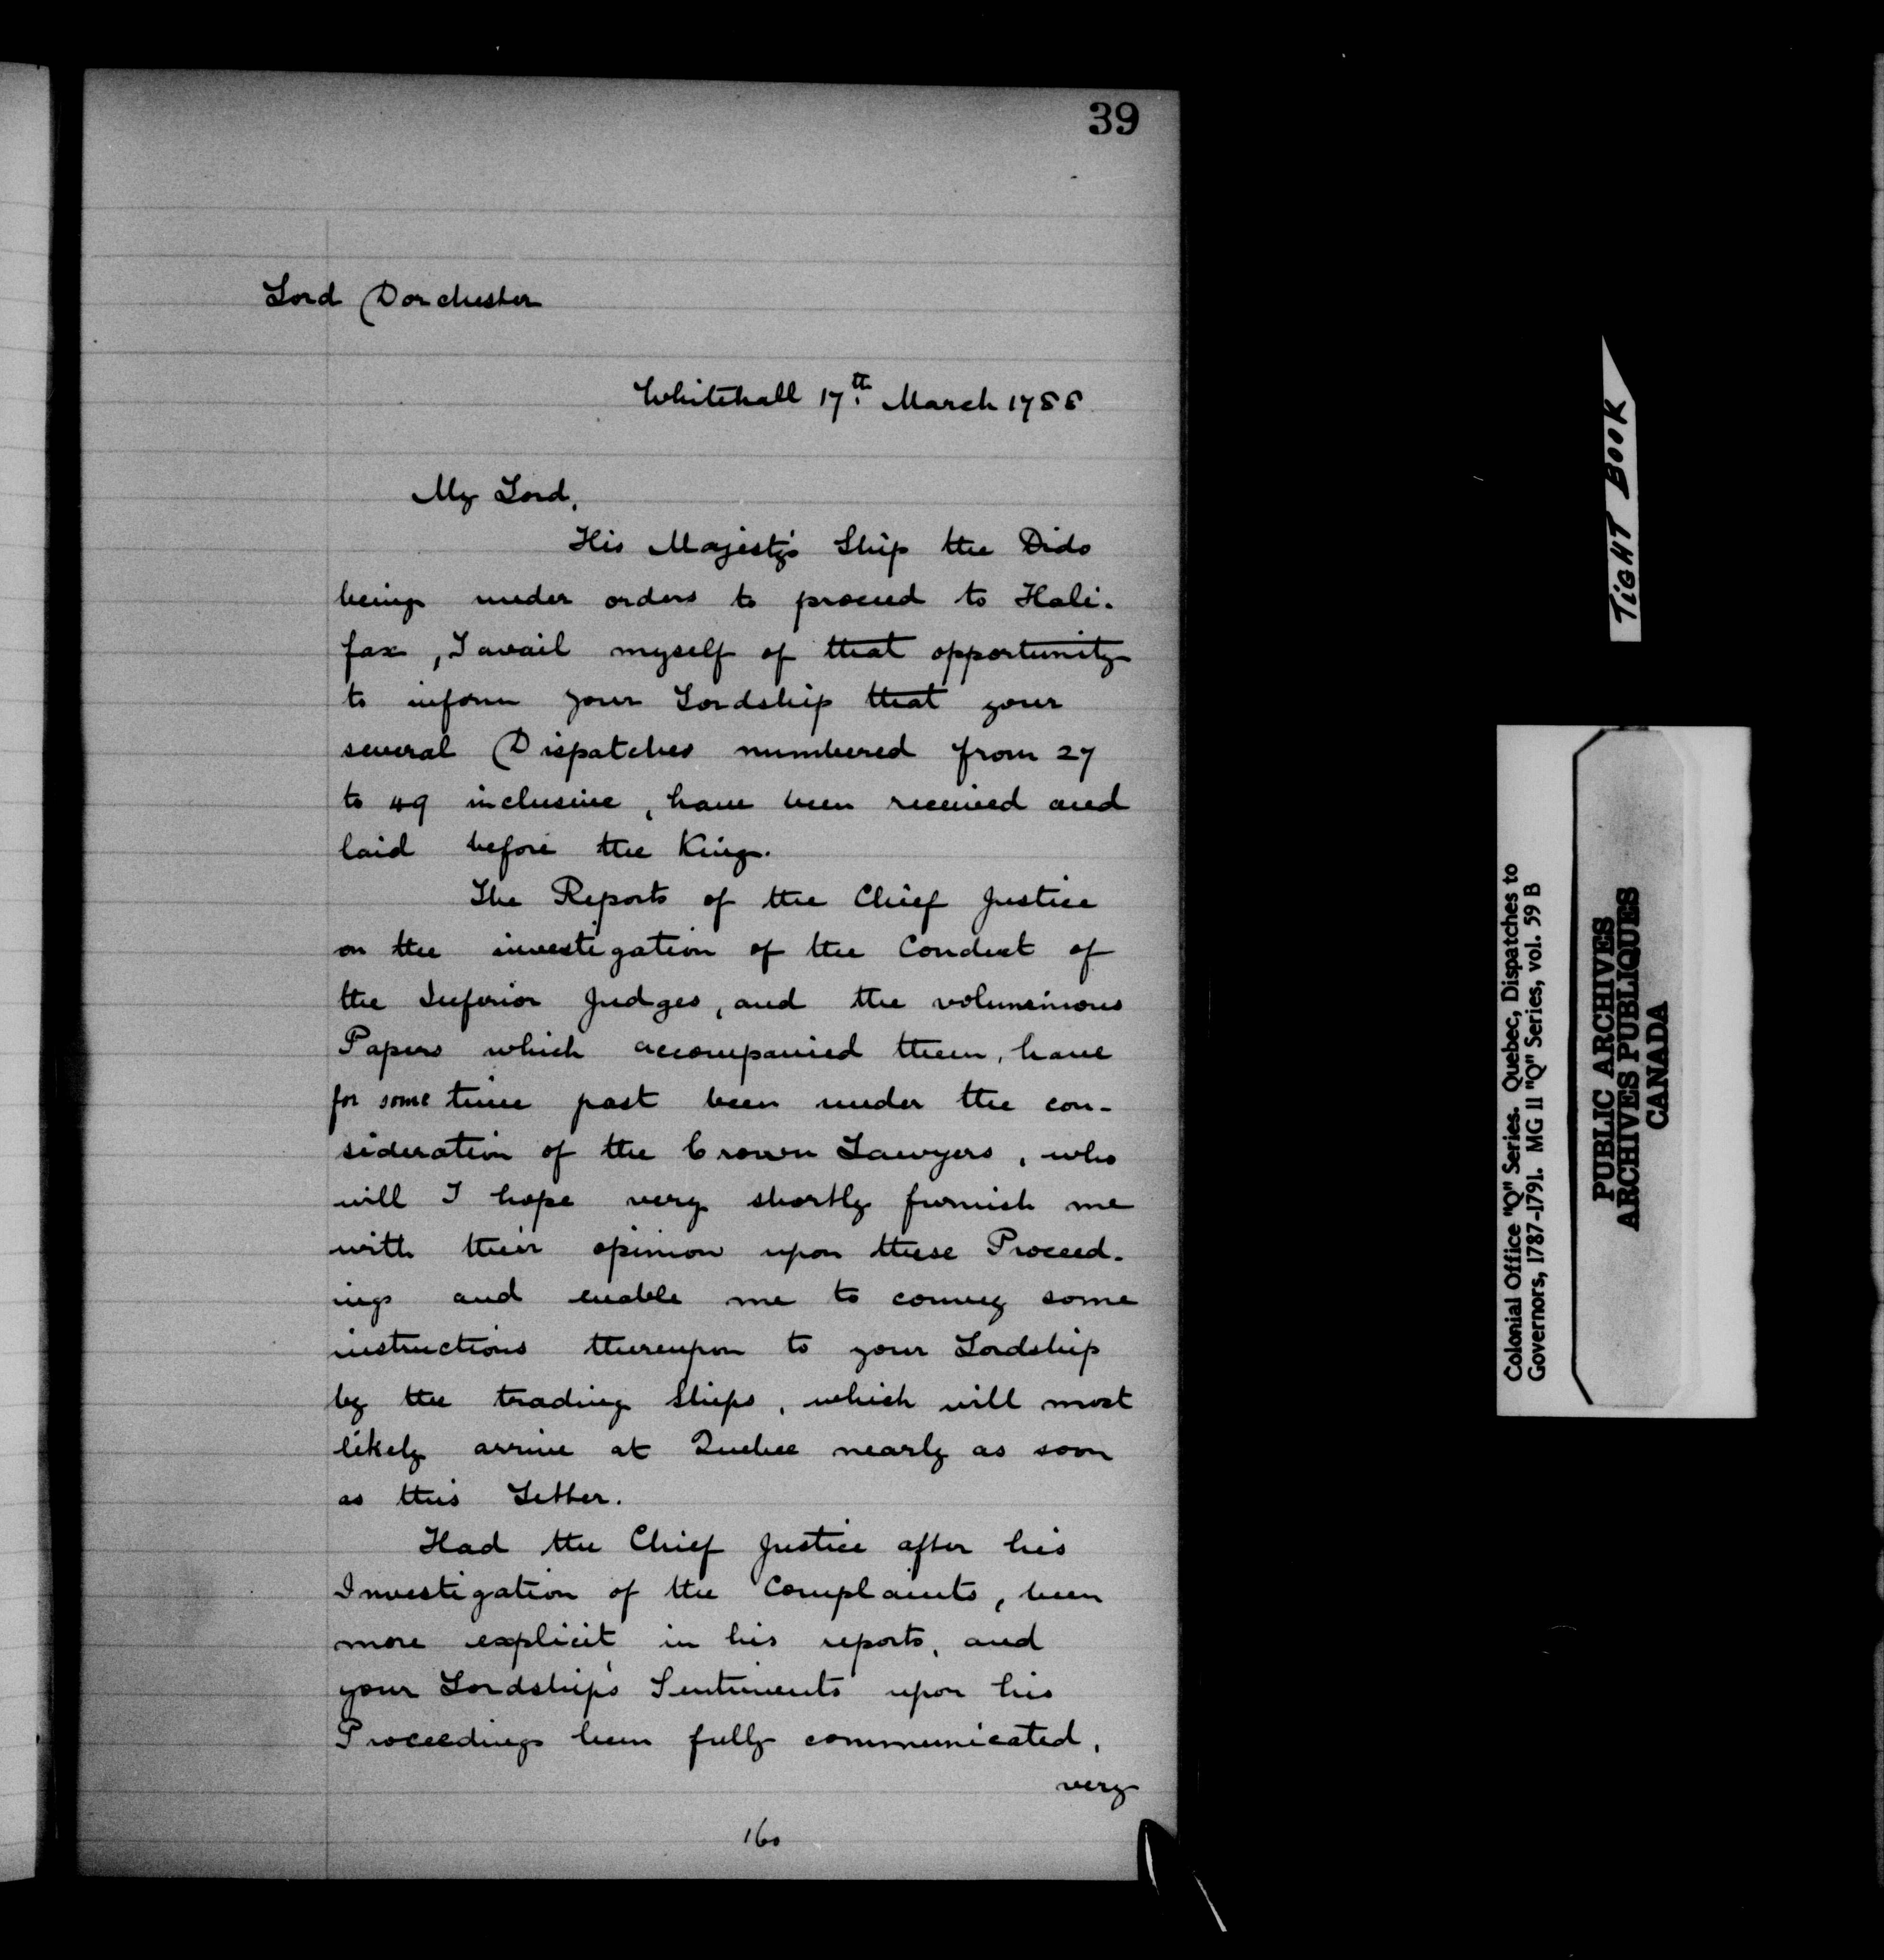 39
Lord Dorchester
Whitehall 17th March 1788
My Lord,
His Majesty's Ship the Dido
being under orders to proceed to Hali-
fax, I avail myself of that opportunity
to inform your Lordship that your
several Dispatches numbered from 27
to 49 inclusive, have been received and
laid before the King.
The Reports of the Chief Justice
on the investigation of the Conduct of
the Inferior Judges, and the voluminous
Papers which accompanied them, have
for some time past been under the con-
sideration of the Crown Lawyers, who
will I hope very shortly furnish me
with their opinion upon these Proceed-
ings and enable me to convey some
instructions thereupon to your Lordship
by the trading Ships, which will most
likely arrive at Quebec nearly as soon
as this Letter.
Had the Chief Justice after his
Investigation of the Complaints, been
more explicit in his reports, and
your Lordship's Sentiments upon his
Proceedings been fully communicated,
very
160
TIGHT BOOK
Colonial Office "Q" Series. Quebec, Dispatches to
Governors, 1787-1791. MG 11 "Q" Series, vol. 59 B
PUBLIC ARCHIVES
ARCHIVES PUBLIQUES
CANADA